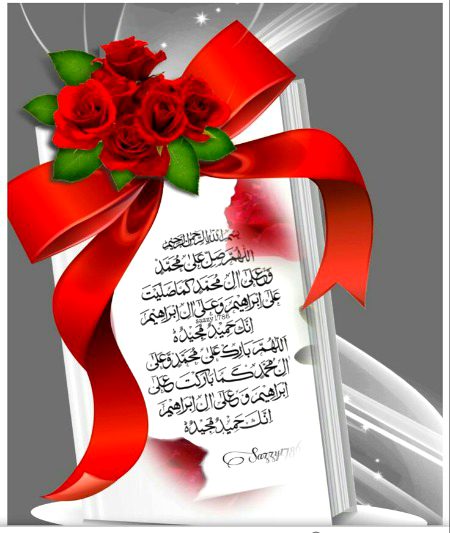 بسم الله الرحمن الرحيم
اللهم صل على محمد
وعلى ال محمد كما صليت
على ابراهيم وعلى ال ابراهيم
sazzy1786
انك حميد مجيد
اللهم بارك على محمد وعلى
ال محمد كما باركت على
ابراهيم وعلى ال ابراهيم
انك حميد مجيد
Sazzy1786